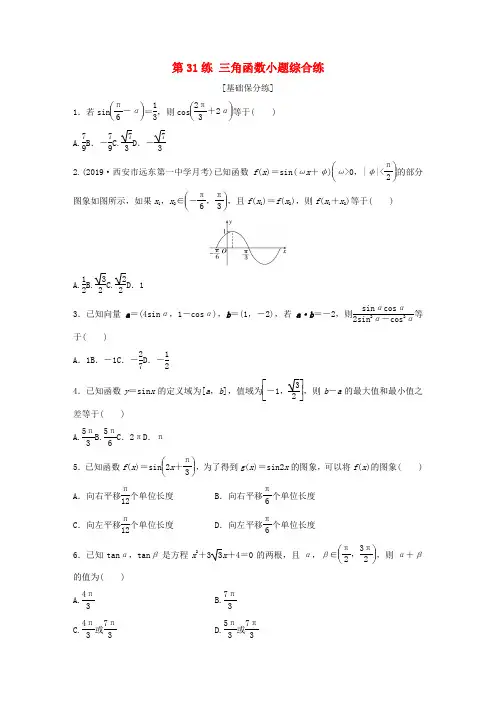 第31练 三角函数小题综合练
[基础保分练]
1.若sin(π/6-α)=1/3,则cos(2π/3+2α)等于( )
A.7/9B.-7/9C.
2.(2019·西安市远东第一中学月考)已知函数f(x)=sin(ωx+φ)(ω>0,|φ|<π/2)的部分
图象如图所示,如果x₁,x₂∈(-π/6,π/3),且f(x₁)=f(x₂),则f(x₁+x₂)等于( )
y
1
-π/6 O π/3 x
A.1/2B.√3/2C.√2/2D.1
3.已知向量a=(4sinα,1-cosα),b=(1,-2),若a·b=-2,则sinαcosα/(2sin²α-cos²α)等
于( )
A.1B.-1C.-2/7D.-1/2
4.已知函数y=sinx的定义域为[a,b],值域为[-1,√3/2],则b-a的最大值和最小值之
差等于( )
A.5π/3B.5π/6C.2πD.π
5.已知函数f(x)=sin(2x+π/3),为了得到g(x)=sin2x的图象,可以将f(x)的图象( )
A.向右平移π/12个单位长度 B.向右平移π/6个单位长度
C.向左平移π/12个单位长度 D.向左平移π/6个单位长度
6.已知tanα,tanβ是方程x²+3√3x+4=0的两根,且α,β∈(π/2,3π/2),则α+β
的值为( )
A.4π/3 B.7π/3
C.4π/3或7π/3 D.5π/3或7π/3